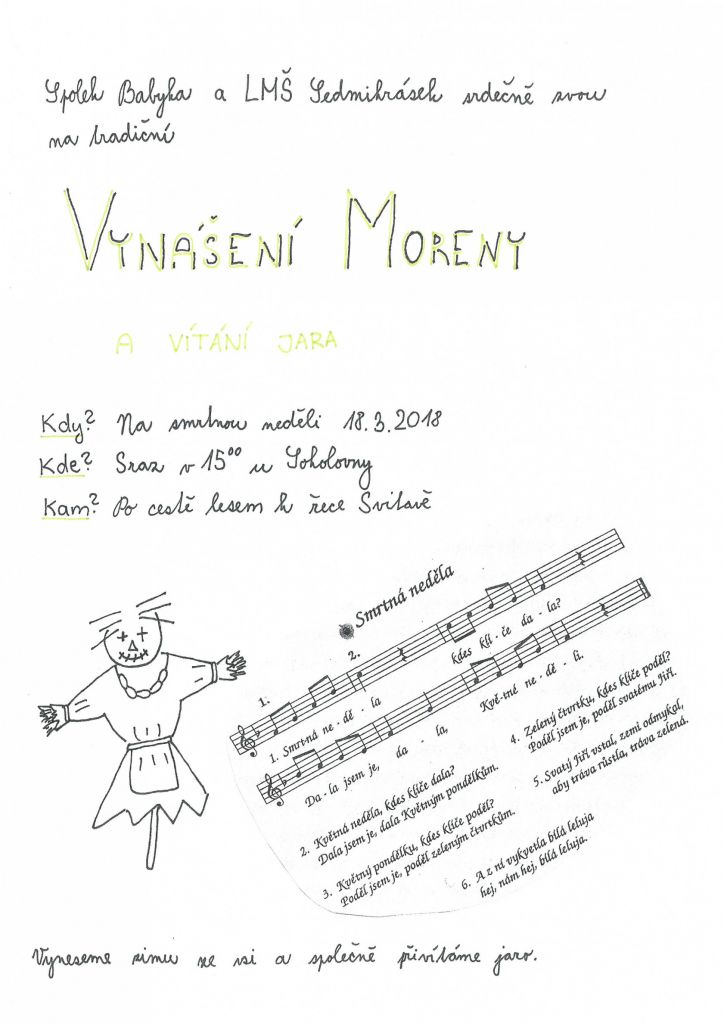 Spolek Babyka a LMŠ Sedmikrásek srdečně zvou
na tradiční
VYNÁŠENÍ MORENY
A VÍTÁNÍ JARA
Kdy? Na smrtnou neděli 18.3.2018
Kde? Sraz v 15⁰⁰ u Sokolovny
Kam? Po cestě lesem k řece Svitavě
Smrtná neděla
1. 2.
1. Smrtná ne - dě - la kdes klí - če da - la?
Da - la jsem je, da - la, Kvě - tné ne - dě - li.
2. Květná neděla, kdes klíče dala?
Dala jsem je, dala Květným pondělkům.
3. Květný pondělku, kdes klíče poděl?
Poděl jsem je, poděl zeleným čtvrtkům.
4. Zelený čtvrtku, kdes klíče poděl?
Poděl jsem je, poděl svatému Jiří.
5. Svatý Jiří vstal, zemi odmykal,
aby tráva růstla, tráva zelená.
6. A z ní vykvetla bílá leluja
hej, nám hej, bílá leluja.
Vyneseme zimu ze vsi a společně přivítáme jaro.